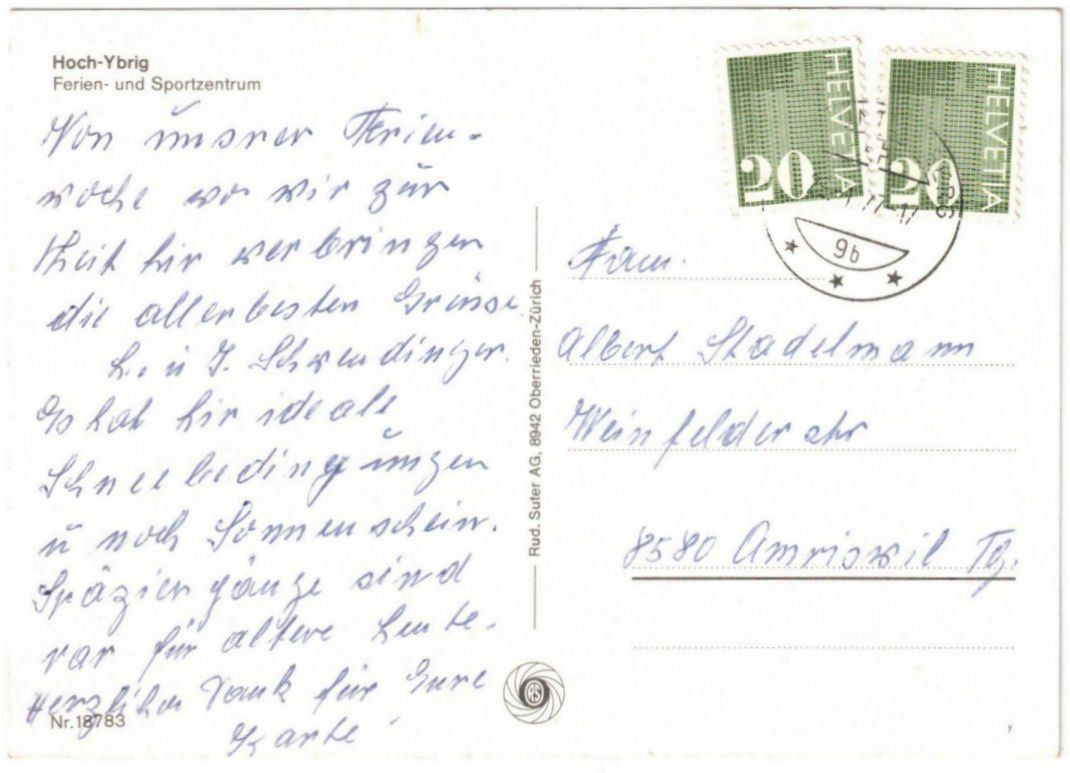 Hoch-Ybrig
Ferien- und Sportzentrum
Von unsrer Ferien-
woche wo wir zur
Zeit hir verbringen
die allerbesten Grüsse
L. u J. Schwendinger.
Es hat hir ideale
Schneebedingungen
u noch Sonnenschein.
Späziergänge sind
rar für altere Leute.
Herzlichen Dank für Eure
Karte
Nr. 18783
Rud. Suter AG, 8942 Oberrieden-Zürich
RS
HELVETIA
20
HELVETIA
20
77-17
9b
Fam.
Albert Stadelmann
Weinfelderstr
8580 Amriswil Tg.